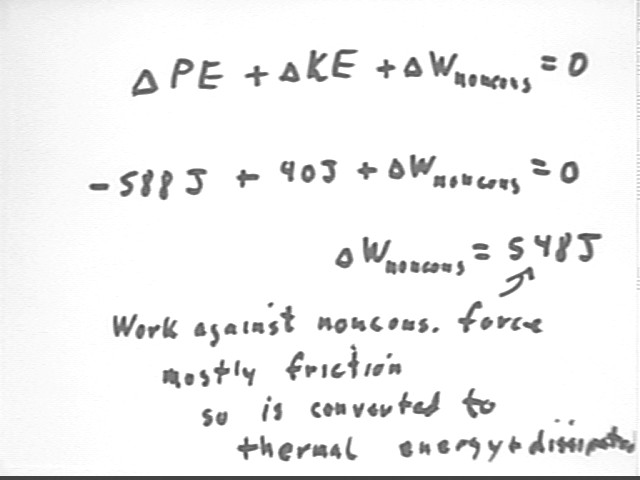 Δ PE + Δ KE + Δ W noncons = 0
- 588 J + 40 J + Δ W noncons = 0
Δ W noncons = 548 J
Work against noncons. force
mostly friction
so is converted to
thermal energy + dissipated